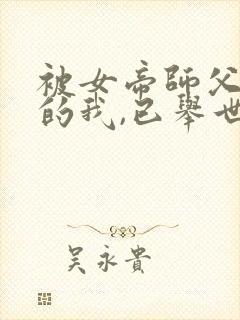 被女帝師父
的我,已舉世
吳永貴